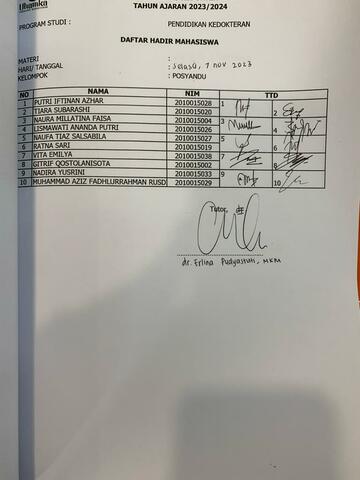 Uhamka
TAHUN AJARAN 2023/2024
PROGRAM STUDI : PENDIDIKAN KEDOKTERAN
DAFTAR HADIR MAHASISWA
MATERI :
HARI/TANGGAL : Selasa, 7 Nov 2023
KELOMPOK : POSYANDU
NO NAMA NIM TTD
1 PUTRI IFTINAN AZHAR 2010015028 1
2 TIARA SUBARASHI 2010015020 2
3 NAURA MILLATINA FAISA 2010015004 3
4 LISMAWATI ANANDA PUTRI 2010015026 4
5 NAUFA TIAZ SALSABILA 2010015027 5
6 RATNA SARI 2010015019 6
7 VITA EMILYA 2010015038 7
8 GITRIF QOSTOLANISOTA 2010015002 8
9 NADIRA YUSRINI 2010015033 9
10 MUHAMMAD AZIZ FADHLURRAHMAN RUSD 2010015029 10
Tutor,
dr. Erlina Pudyastuti, MKM